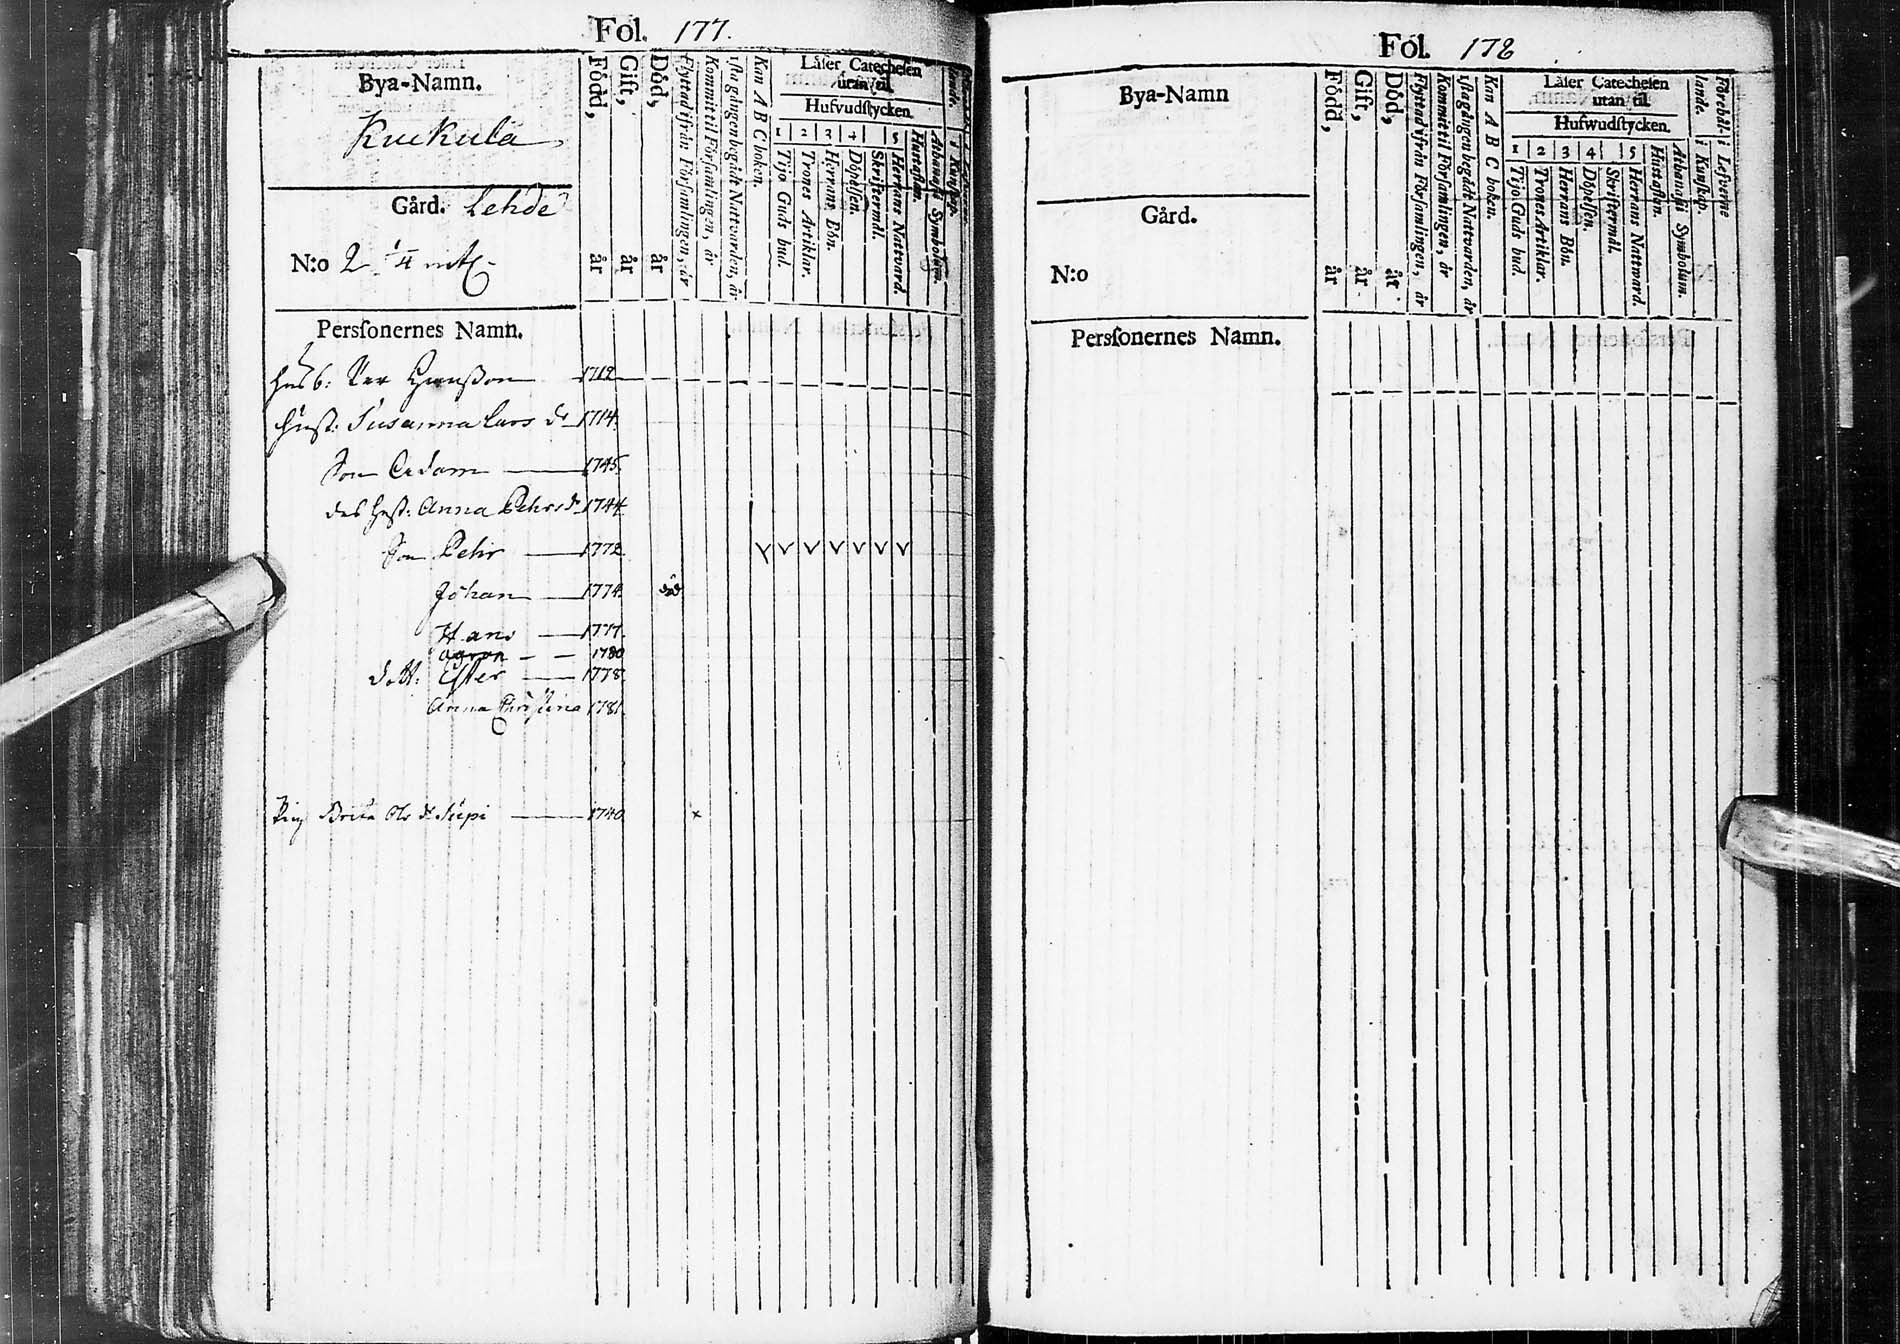 Fol. 177.
Bya-Namn.
Kuckula
Gård. Lehde
N:o 2 1/4 mtl
Född, år
Gift, år
Död, år
Flyttad ifrån Församlingen, år
Kommit til Församlingen, år
1sta gången begådt Nattvarden, år
Kan A B C boken.
Låser Catechesen
utan til.
Hufvudstycken.
1 2 3 4 5
Tijo Guds bud.
Trones Artiklar.
Herrans Bön.
Döpelsen.
Skriftermål.
Herrans Nattvard.
Hustaflan.
Athanasii Symbolum.
i Kunskap.
Personernes Namn.
Husb: 1712
Hust: Susanna Lars dr 1714
Son Adam 1745
des Hust: Anna Pehrs dr 1744
Son Pehr 1772
Johan 1774 död
Hans 1777
1780
dott: Ester 1778
Anna Christina 1781
Pig Brita Ols dr 1740 ×
Fol. 178
Bya-Namn
Gård.
N:o
Född, år
Gift, år
Död, år
Flyttad ifrån Församlingen, år
Kommit til Församlingen, år
1sta gången begådt Nattvarden, år
Kan A B C boken.
Låser Catechesen
utan til.
Hufwudstycken.
1 2 3 4 5
Tijo Guds bud.
Trones Artiklar.
Herrans Bön.
Döpelsen.
Skriftermål.
Herrans Nattward.
Hustaflan.
Athanasii Symbolum.
Förehållande.
i Kunskap.
i Lefverne
Personernes Namn.